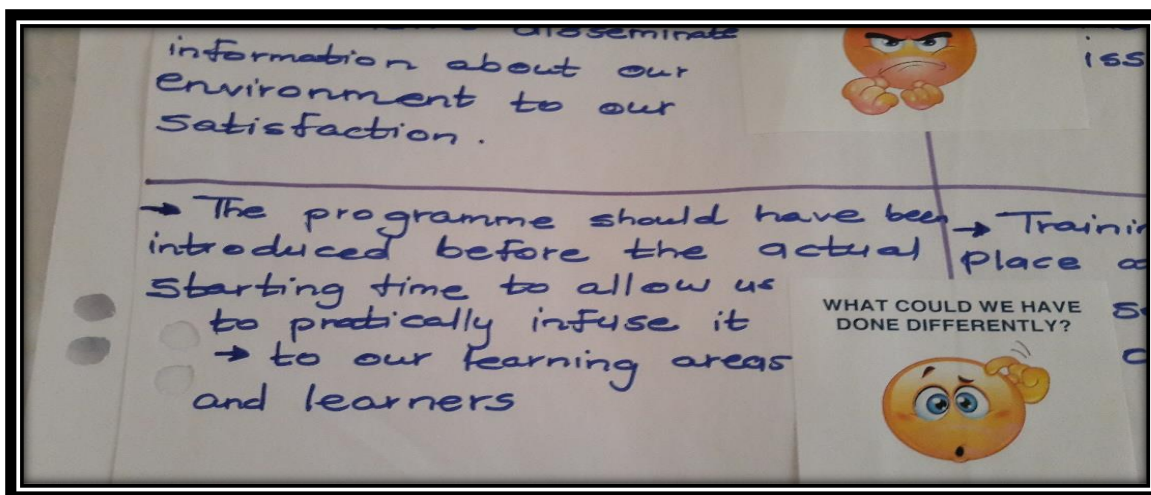 disseminate
information about our
environment to our
satisfaction.
iss
→ The programme should have been
introduced before the actual
starting time to allow us
to pratically infuse it
→ to our learning areas
and learners
→ Trainin
Place
WHAT COULD WE HAVE
DONE DIFFERENTLY?